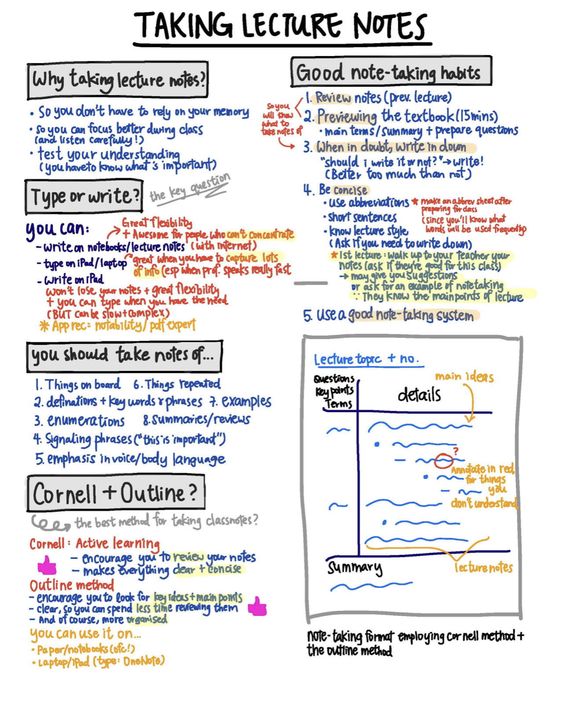 TAKING LECTURE NOTES
Why taking lecture notes?
• So you don't have to rely on your memory
• so you can focus better during class
(and listen carefully!)
• test your understanding
(you have to know what's important)
Type or write?
the key question
you can:
Great flexibility
+ Awesome for people who can't concentrate
- write on notebooks/lecture notes (with internet)
- type on iPad/laptop
great when you have to capture lots
of info (esp when prof. speaks really fast
- Write on iPad
won't lose your notes + great flexibility
+ you can type when you have the need
(BUT can be slow + complex)
* App rec: notability/pdf expert
you should take notes of...
1. Things on board
2. definations + key words & phrases
3. enumerations
4. Signaling phrases ("this is important")
5. emphasis in voice/body language
6. Things repeated
7. examples
8. summaries/reviews
Cornell + Outline?
the best method for taking classnotes?
Cornell: Active learning
- encourage you to review your notes
- makes everything clear + concise
Outline method
- encourage you to look for key ideas + main points
- clear, so you can spend less time reviewing them
- And of course, more organised
you can use it on...
• Paper/notebooks (ofc!)
• Laptop/iPad (type: OneNote)
Good note-taking habits
So you
will know
what to
take notes of
1. Review notes (prev. lecture)
2. Previewing the textbook (15mins)
• main terms/summary + prepare questions
3. When in doubt, write in down
"should i write it or not?" → write!
(Better too much than not)
4. Be concise
• Use abbreviations
• short sentences
• know lecture style
(Ask if you need to write down)
* make an abbrev sheet after
preparing for class
(since you'll know what
words will be used frequently)
* 1st lecture: walk up to your teacher your
notes (ask if they're good for this class)
→ may give you suggestions
or ask for an example of notetaking
∵ They know the main points of lecture
5. Use a good note-taking system
Lecture topic + no.
Questions
Key points
Terms
details
main ideas
?
Annotate in red
for things
you
don't understand
Summary
lecture notes
note-taking format employing cornell method +
the outline method